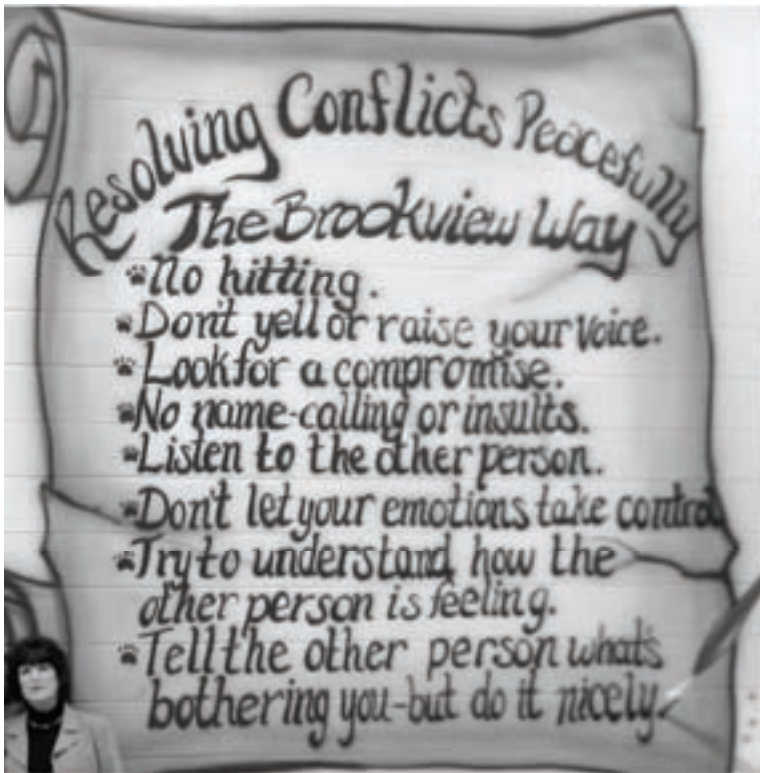 Resolving Conflicts Peacefully
The Brookview Way
No hitting.
Don't yell or raise your voice.
Look for a compromise.
No name-calling or insults.
Listen to the other person.
Don't let your emotions take control
Try to understand how the
other person is feeling.
Tell the other person what's
bothering you-but do it nicely.